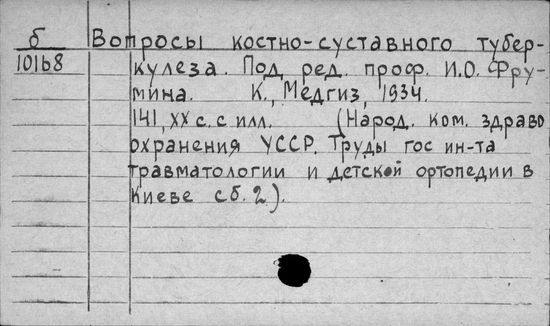 б Вопросы костно-суставного тубер-
10168 кулеза. Под ред. проф. И.О. Фру-
мина. К., Медгиз, 1934.
141, XX с. с илл. (Народ. ком. здраво
охранения УССР. Труды гос ин-та
травматологии и детской ортопедии в
Киеве сб. 2).